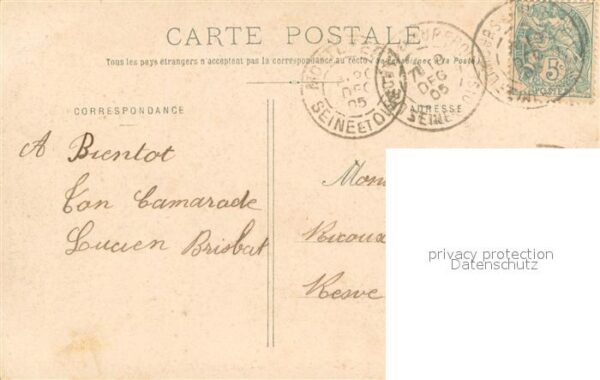 CARTE POSTALE
Tous les pays étrangers n'acceptent pas la correspondance au recto (se renseigner à la Poste)
CORRESPONDANCE
ADRESSE
SEINE ET OISE
DEC
05
DEC
05
SEINE
5c
POSTES
A Bientot
Ton Camarade
Lucien Brisbat
Mon
Ricoux
privacy protection
Datenschutz